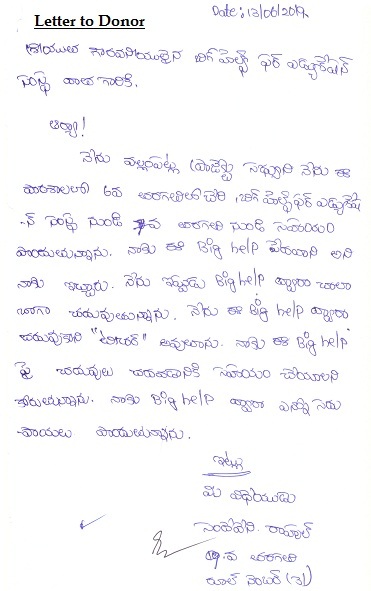 Letter to Donor
Date: 13/06/2019
గౌరవనీయులైన బిగ్ హెల్ప్ ఫర్ ఎడ్యుకేషన్
సంస్థ వారి గారికి.
ఆర్యా!
నేను ప్రాజెక్టు సభ్యుని నేను ఈ
పాఠశాలలో 6వ తరగతిలో చేరి, బిగ్ హెల్ప్ ఫర్ ఎడ్యుకేష
-న్ సంస్థ నుండి 7వ తరగతి నుండి సహాయం
పొందుతున్నాను. నాకు ఈ Big help అని
నాకు ఇచ్చారు. నేను ఇప్పుడు Big help ద్వారా చాలా
బాగా చదువుతున్నాను. నేను ఈ Big help ద్వారా
చదువుకొని "టీచర్" అవుతాను. నాకు ఈ Big help
పై చదువులు చదవడానికి సహాయం చేయాలని
కోరుతున్నాను. నాకు Big help ద్వారా ఎన్నో సదు
-పాయలు పొందుతున్నాను.
ఇట్లు
మీ విధేయుడు
రాహుల్
వ తరగతి
రూల్ నెంబర్ (3)